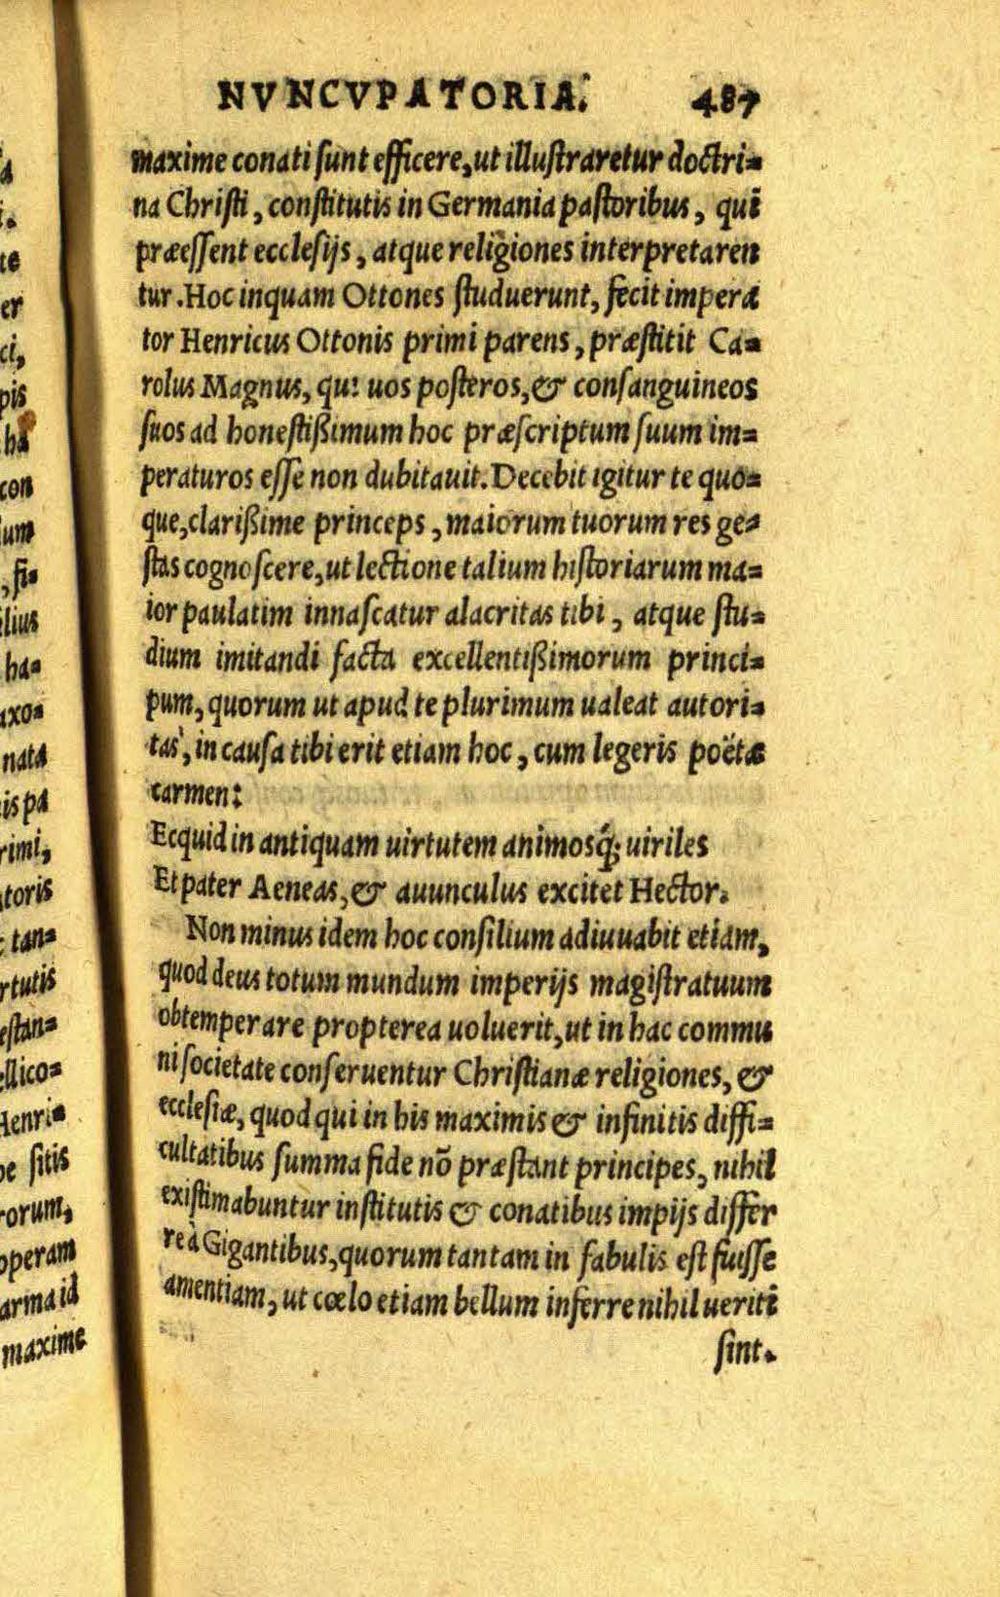 NVNCVPATORIA. 487
maxime conati sunt efficere, ut illustraretur doctri=
na Christi, constitutis in Germania pastoribus, qui
præessent ecclesijs, atque religiones interpretaren
tur. Hoc inquam Ottones studuerunt, fecit impera
tor Henricus Ottonis primi parens, præstitit Ca=
rolus Magnus, qui uos posteros, & consanguineos
suos ad honestißimum hoc præscriptum suum im=
peraturos esse non dubitauit. Decebit igitur te quo=
que, clarißime princeps, maiorum tuorum res ge=
stas cognoscere, ut lectione talium historiarum ma=
ior paulatim innascatur alacritas tibi, atque stu=
dium imitandi facta excellentißimorum princi=
pum, quorum ut apud te plurimum ualeat autori=
tas, in causa tibi erit etiam hoc, cum legeris poëtæ
carmen:
Ecquid in antiquam uirtutem animosq́; uiriles
Et pater Aeneas, & auunculus excitet Hector.
Non minus idem hoc consilium adiuuabit etiam,
quod deus totum mundum imperijs magistratuum
obtemperare propterea uoluerit, ut in hac commu
ni societate conseruentur Christianæ religiones, &
ecclesiæ, quod qui in his maximis & infinitis diffi=
cultatibus summa fide nõ præstant principes, nihil
existimabuntur institutis & conatibus impijs differ
re à Gigantibus, quorum tantam in fabulis est fuisse
amentiam, ut cœlo etiam bellum inferre nihil ueriti
sint.
te
er
ci,
pis
ha
con
ium
, fi=
ilius
ha=
axo=
nata
is pa
rimi,
atoris
: tan=
rtutis
estan=
ellico=
Henri=
pe sitis
rorum,
operam
arma id
maxime